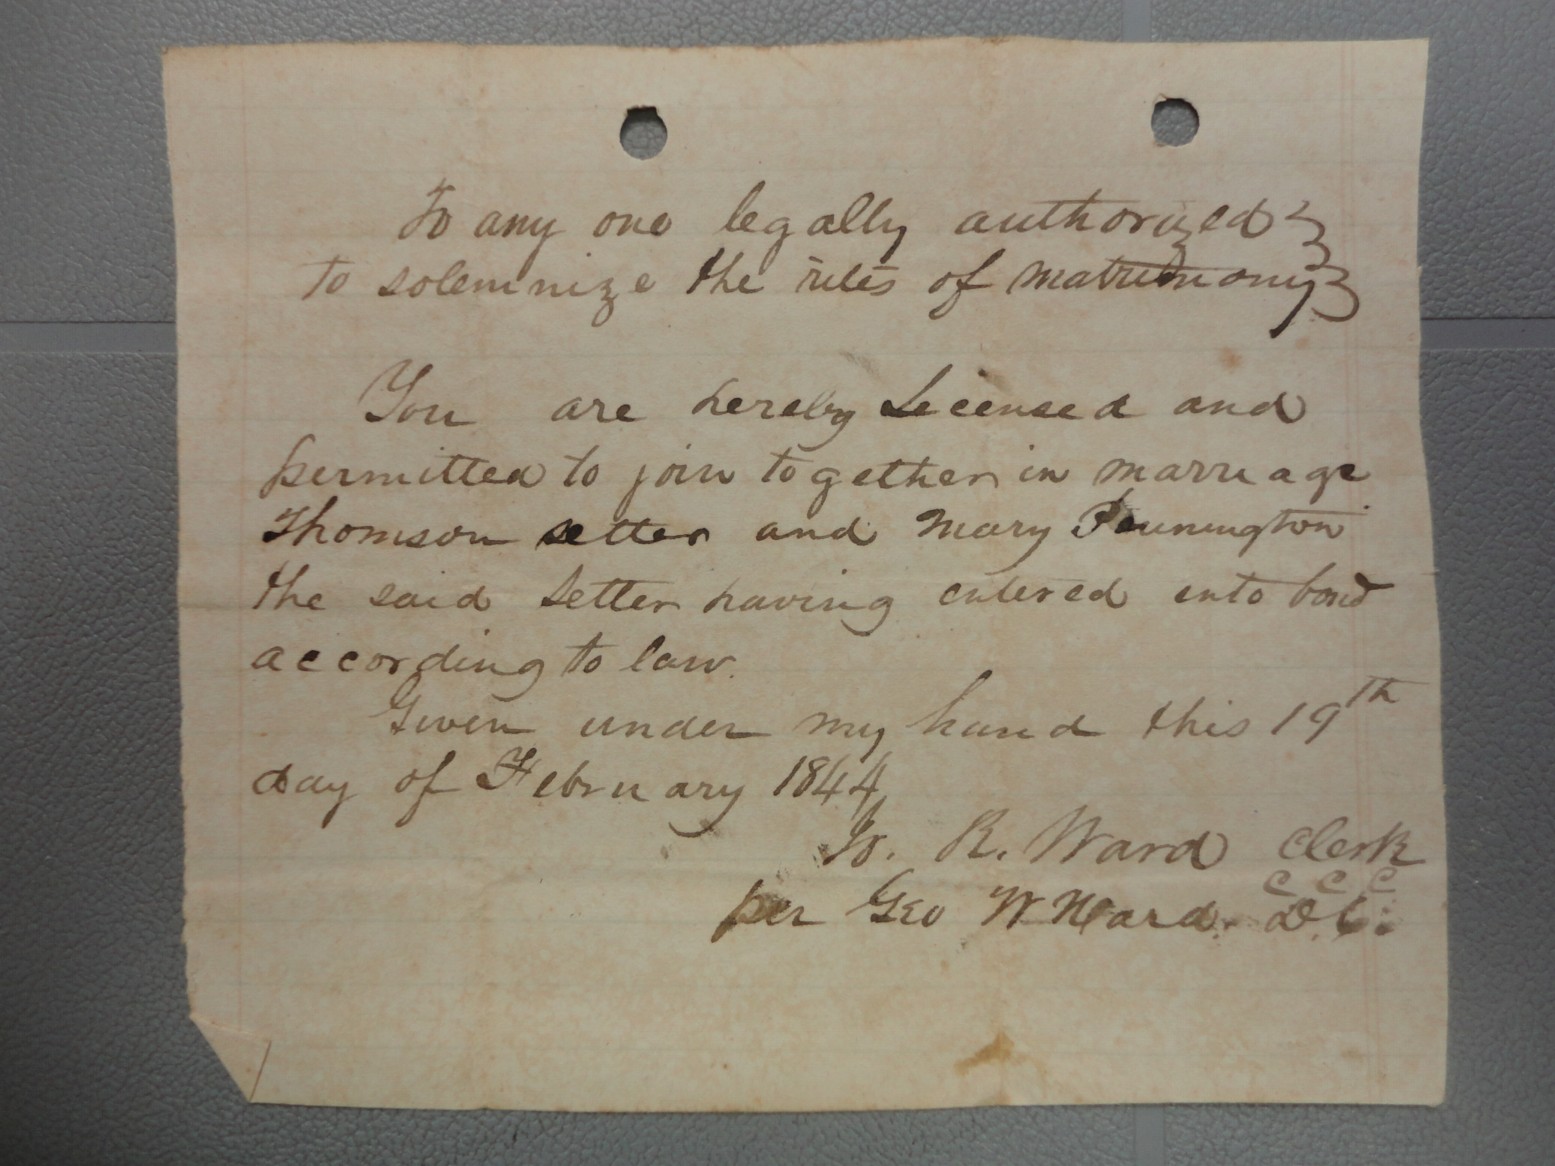 To any one legally authorized
to solemnize the rites of matrimony
You are hereby Licensed and
permitted to join together in marriage
Thomson Setter and Mary Pennington
the said Setter having entered into bond
according to law.
Given under my hand this 19th
day of February 1844
R. Ward Clerk
C C C
per Geo W Ward. D.C.